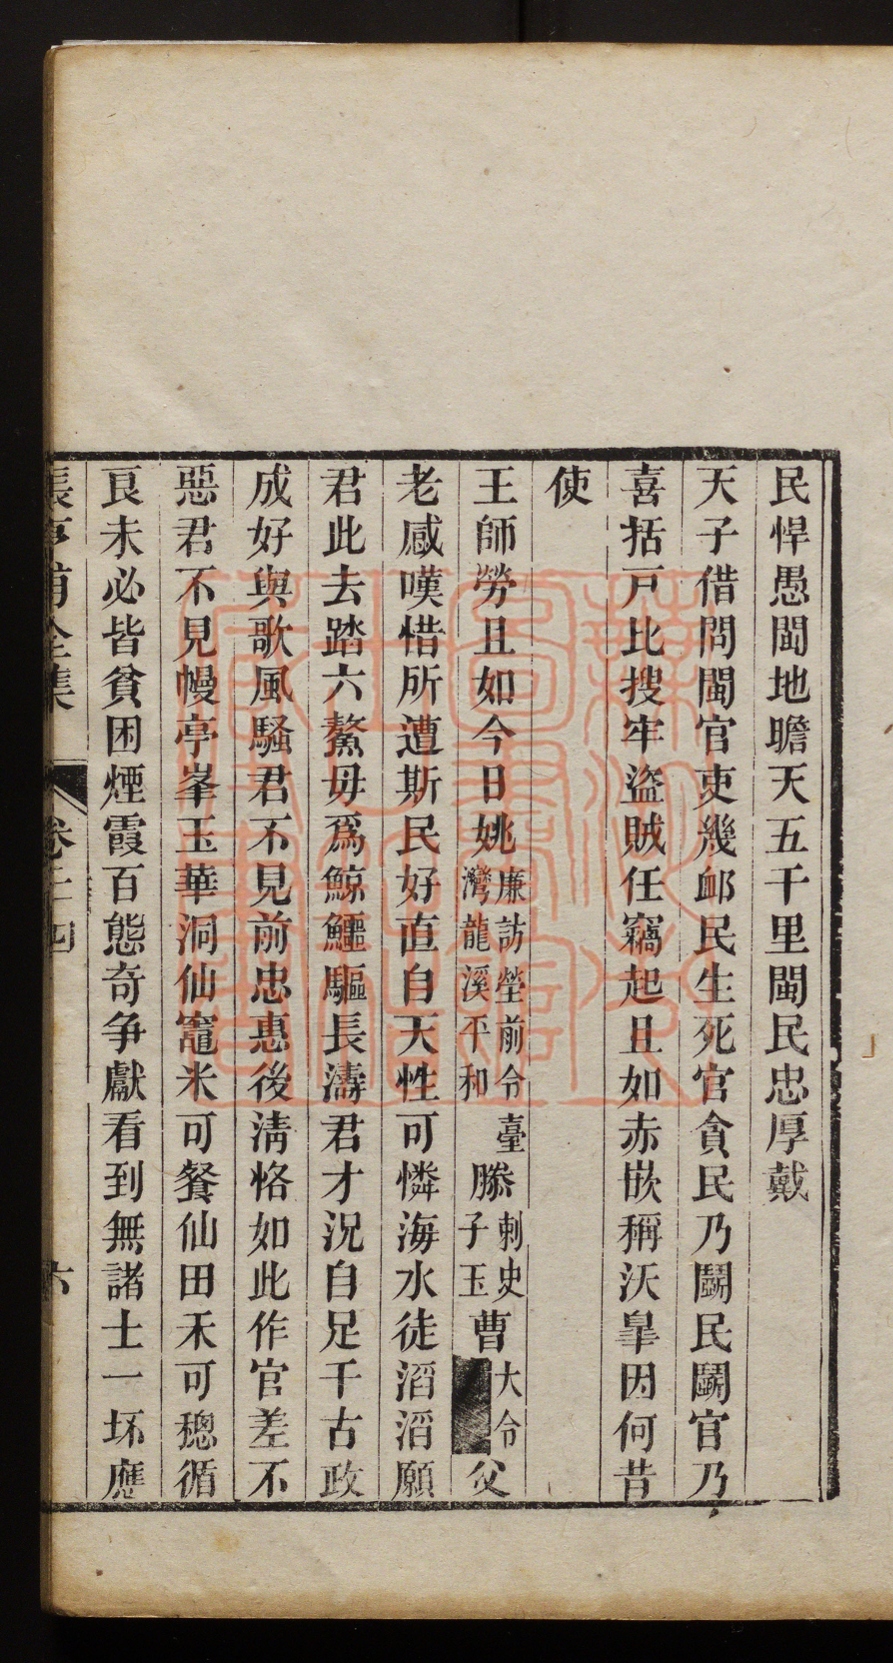 民悍愚閩地瞻天五千里閩民忠厚戴
天子借問閩官吏幾邮民生死官貪民乃鬭民鬭官乃
喜括戸比搜牢盜賊任竊起且如赤嵌稱沃臯因何昔
使
王師勞且如今日姚廉訪瑩前令臺灣龍溪平和滕參刺史子玉曹大令父
老感嘆惜所遭斯民好直自天性可憐海水徒滔滔願
君此去踏六鰲毋爲鯨鱷驅長濤君才況自足千古政
成好與歌風騷君不見前忠惠後淸恪如此作官差不
惡君不見幔亭峯玉華洞仙竈米可餐仙田禾可穗循
良未必皆貧困煙霞百態奇争獻看到無諸士一坏應
張亨甫全集
卷二十四
六